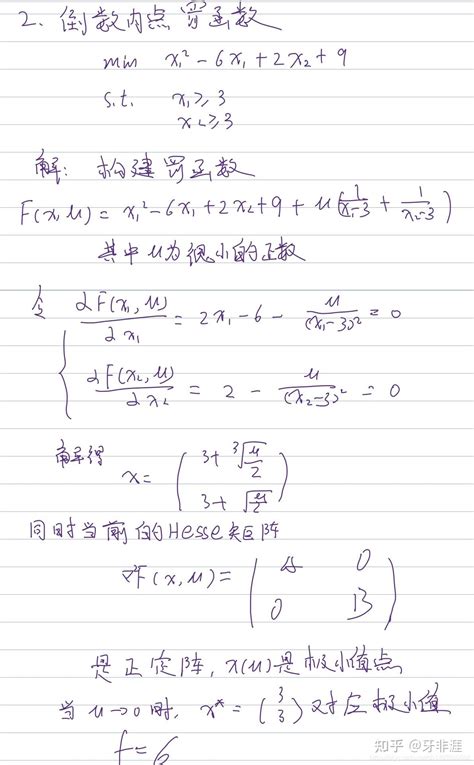 2. 倒数内点罚函数
min x₁² - 6x₁ + 2x₂ + 9
s.t. x₁ ≥ 3
x₂ ≥ 3
解: 构建罚函数
F(x,μ) = x₁² - 6x₁ + 2x₂ + 9 + μ(1/(x₁-3) + 1/(x₂-3))
其中μ为很小的正数
令 ∂F(x₁,μ)/∂x₁ = 2x₁ - 6 - μ/(x₁-3)² = 0
∂F(x₂,μ)/∂x₂ = 2 - μ/(x₂-3)² = 0
解得 x = (3+∛(μ/2)
3+√(μ/2))
同时当前的Hesse矩阵
∇F(x,μ) = (A 0
0 B)
是正定阵, x(μ)是极小值点
当μ→0时, x* = (3 3) 对应极小值
f=6
知乎 @牙非涯